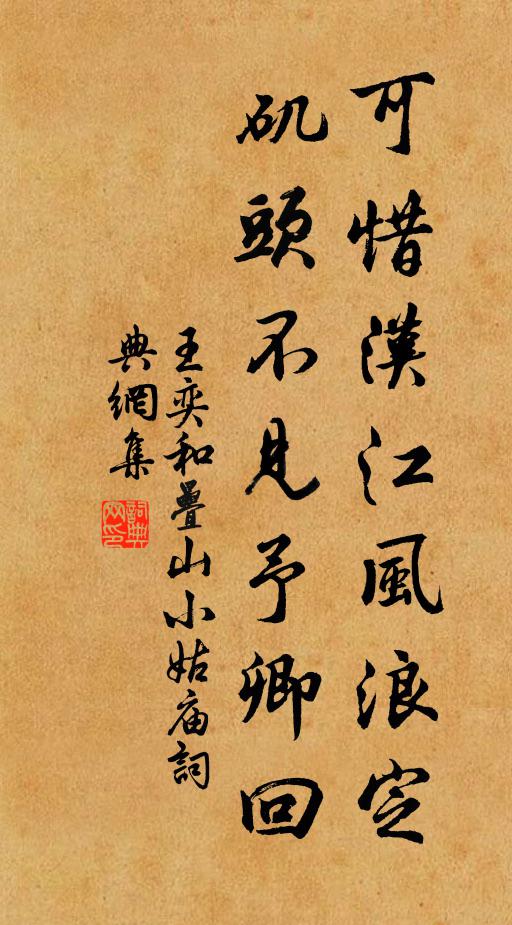 可惜漢江風浪定
矶頭不見予卿回
王奕和疊山小姑庙詞
典網集
詞典网印